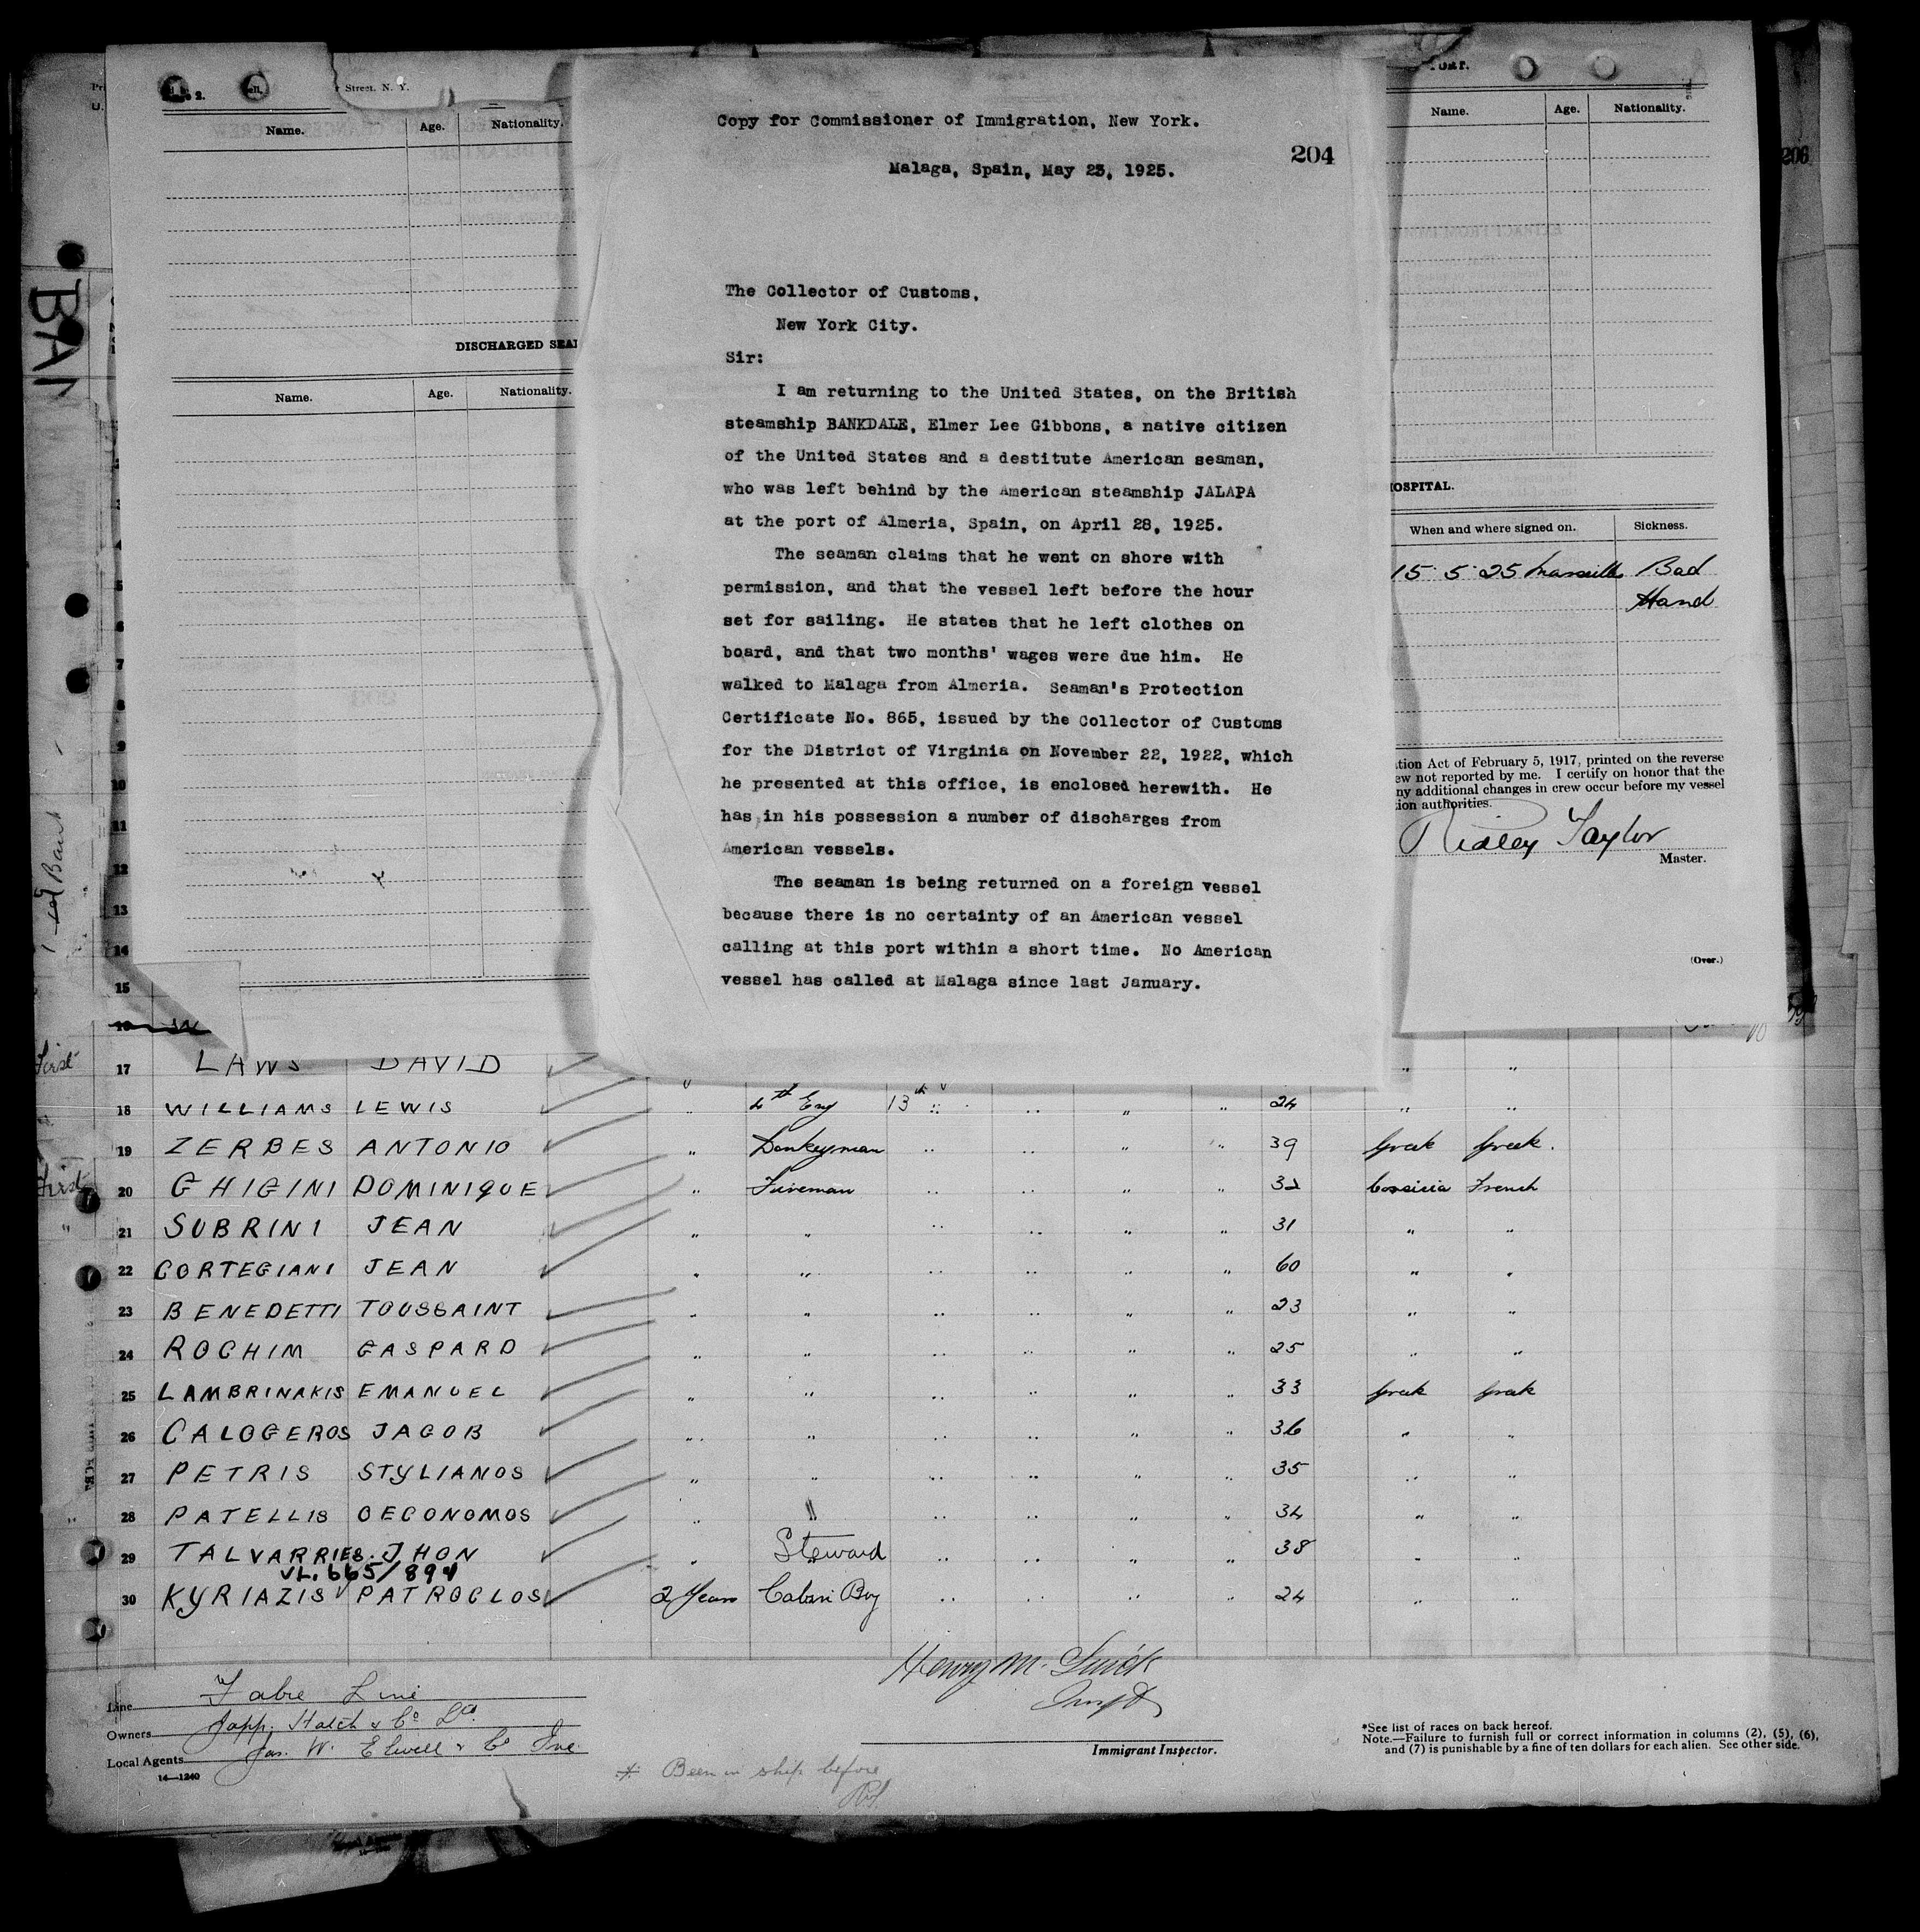 Street, N. Y.
Name. Age. Nationality.
DISCHARGED SEA
Name. Age. Nationality.
Copy for Commissioner of Immigration, New York.
204
Malaga, Spain, May 23, 1925.
The Collector of Customs,
New York City.
Sir:
I am returning to the United States, on the British
steamship BANKDALE, Elmer Lee Gibbons, a native citizen
of the United States and a destitute American seaman,
who was left behind by the American steamship JALAPA
at the port of Almeria, Spain, on April 28, 1925.
The seaman claims that he went on shore with
permission, and that the vessel left before the hour
set for sailing. He states that he left clothes on
board, and that two months' wages were due him. He
walked to Malaga from Almeria. Seaman's Protection
Certificate No. 865, issued by the Collector of Customs
for the District of Virginia on November 22, 1922, which
he presented at this office, is enclosed herewith. He
has in his possession a number of discharges from
American vessels.
The seaman is being returned on a foreign vessel
because there is no certainty of an American vessel
calling at this port within a short time. No American
vessel has called at Malaga since last January.
Name. Age. Nationality.
206
OSPITAL.
When and where signed on. Sickness.
15 5 25 Marseilles Bad
Hand
tion Act of February 5, 1917, printed on the reverse
ew not reported by me. I certify on honor that the
ny additional changes in crew occur before my vessel
ion authorities.
Ridley Taylor
Master.
(Over.)
BAN
4
5
6
7
8
9
10
11
12
13
14
15
16 W
First 17 LAWS DAVID " "
18 WILLIAMS LEWIS " 4th Eng 13th " " " " 24 " "
19 ZERBES ANTONIO " Donkeyman " " " " 39 Greek Greek.
First 20 GHIGINI DOMINIQUE " Fireman " " " " 32 Corsicia French
" 21 SUBRINI JEAN " " " " " " 31 " "
22 CORTEGIANI JEAN " " " " " " 60 " "
23 BENEDETTI TOUSSAINT " " " " " " 23 " "
24 ROCHIM GASPARD " " " " " " 25 " "
25 LAMBRINAKIS EMANUEL " " " " " " 33 Greek Greek
26 CALOGEROS JACOB " " " " " " 36 " "
27 PETRIS STYLIANOS " " " " " " 35 " "
" 28 PATELLIS OECONOMOS " " " " " " 34 " "
29 TALVARRIES. JHON " Steward " " " " 38 " "
VL. 665/894
30 KYRIAZIS PATROCLOS 2 Years Cabin Boy " " " " 24 " "
Line Fabre Line
Owners Japp. Hatch & Co Ld.
Local Agents Jas. W. Elwell & Co Inc.
14—1240
Henry M.
Immigrant Inspector.
* Been in ship before
*See list of races on back hereof.
Note.—Failure to furnish full or correct information in columns (2), (5), (6),
and (7) is punishable by a fine of ten dollars for each alien. See other side.